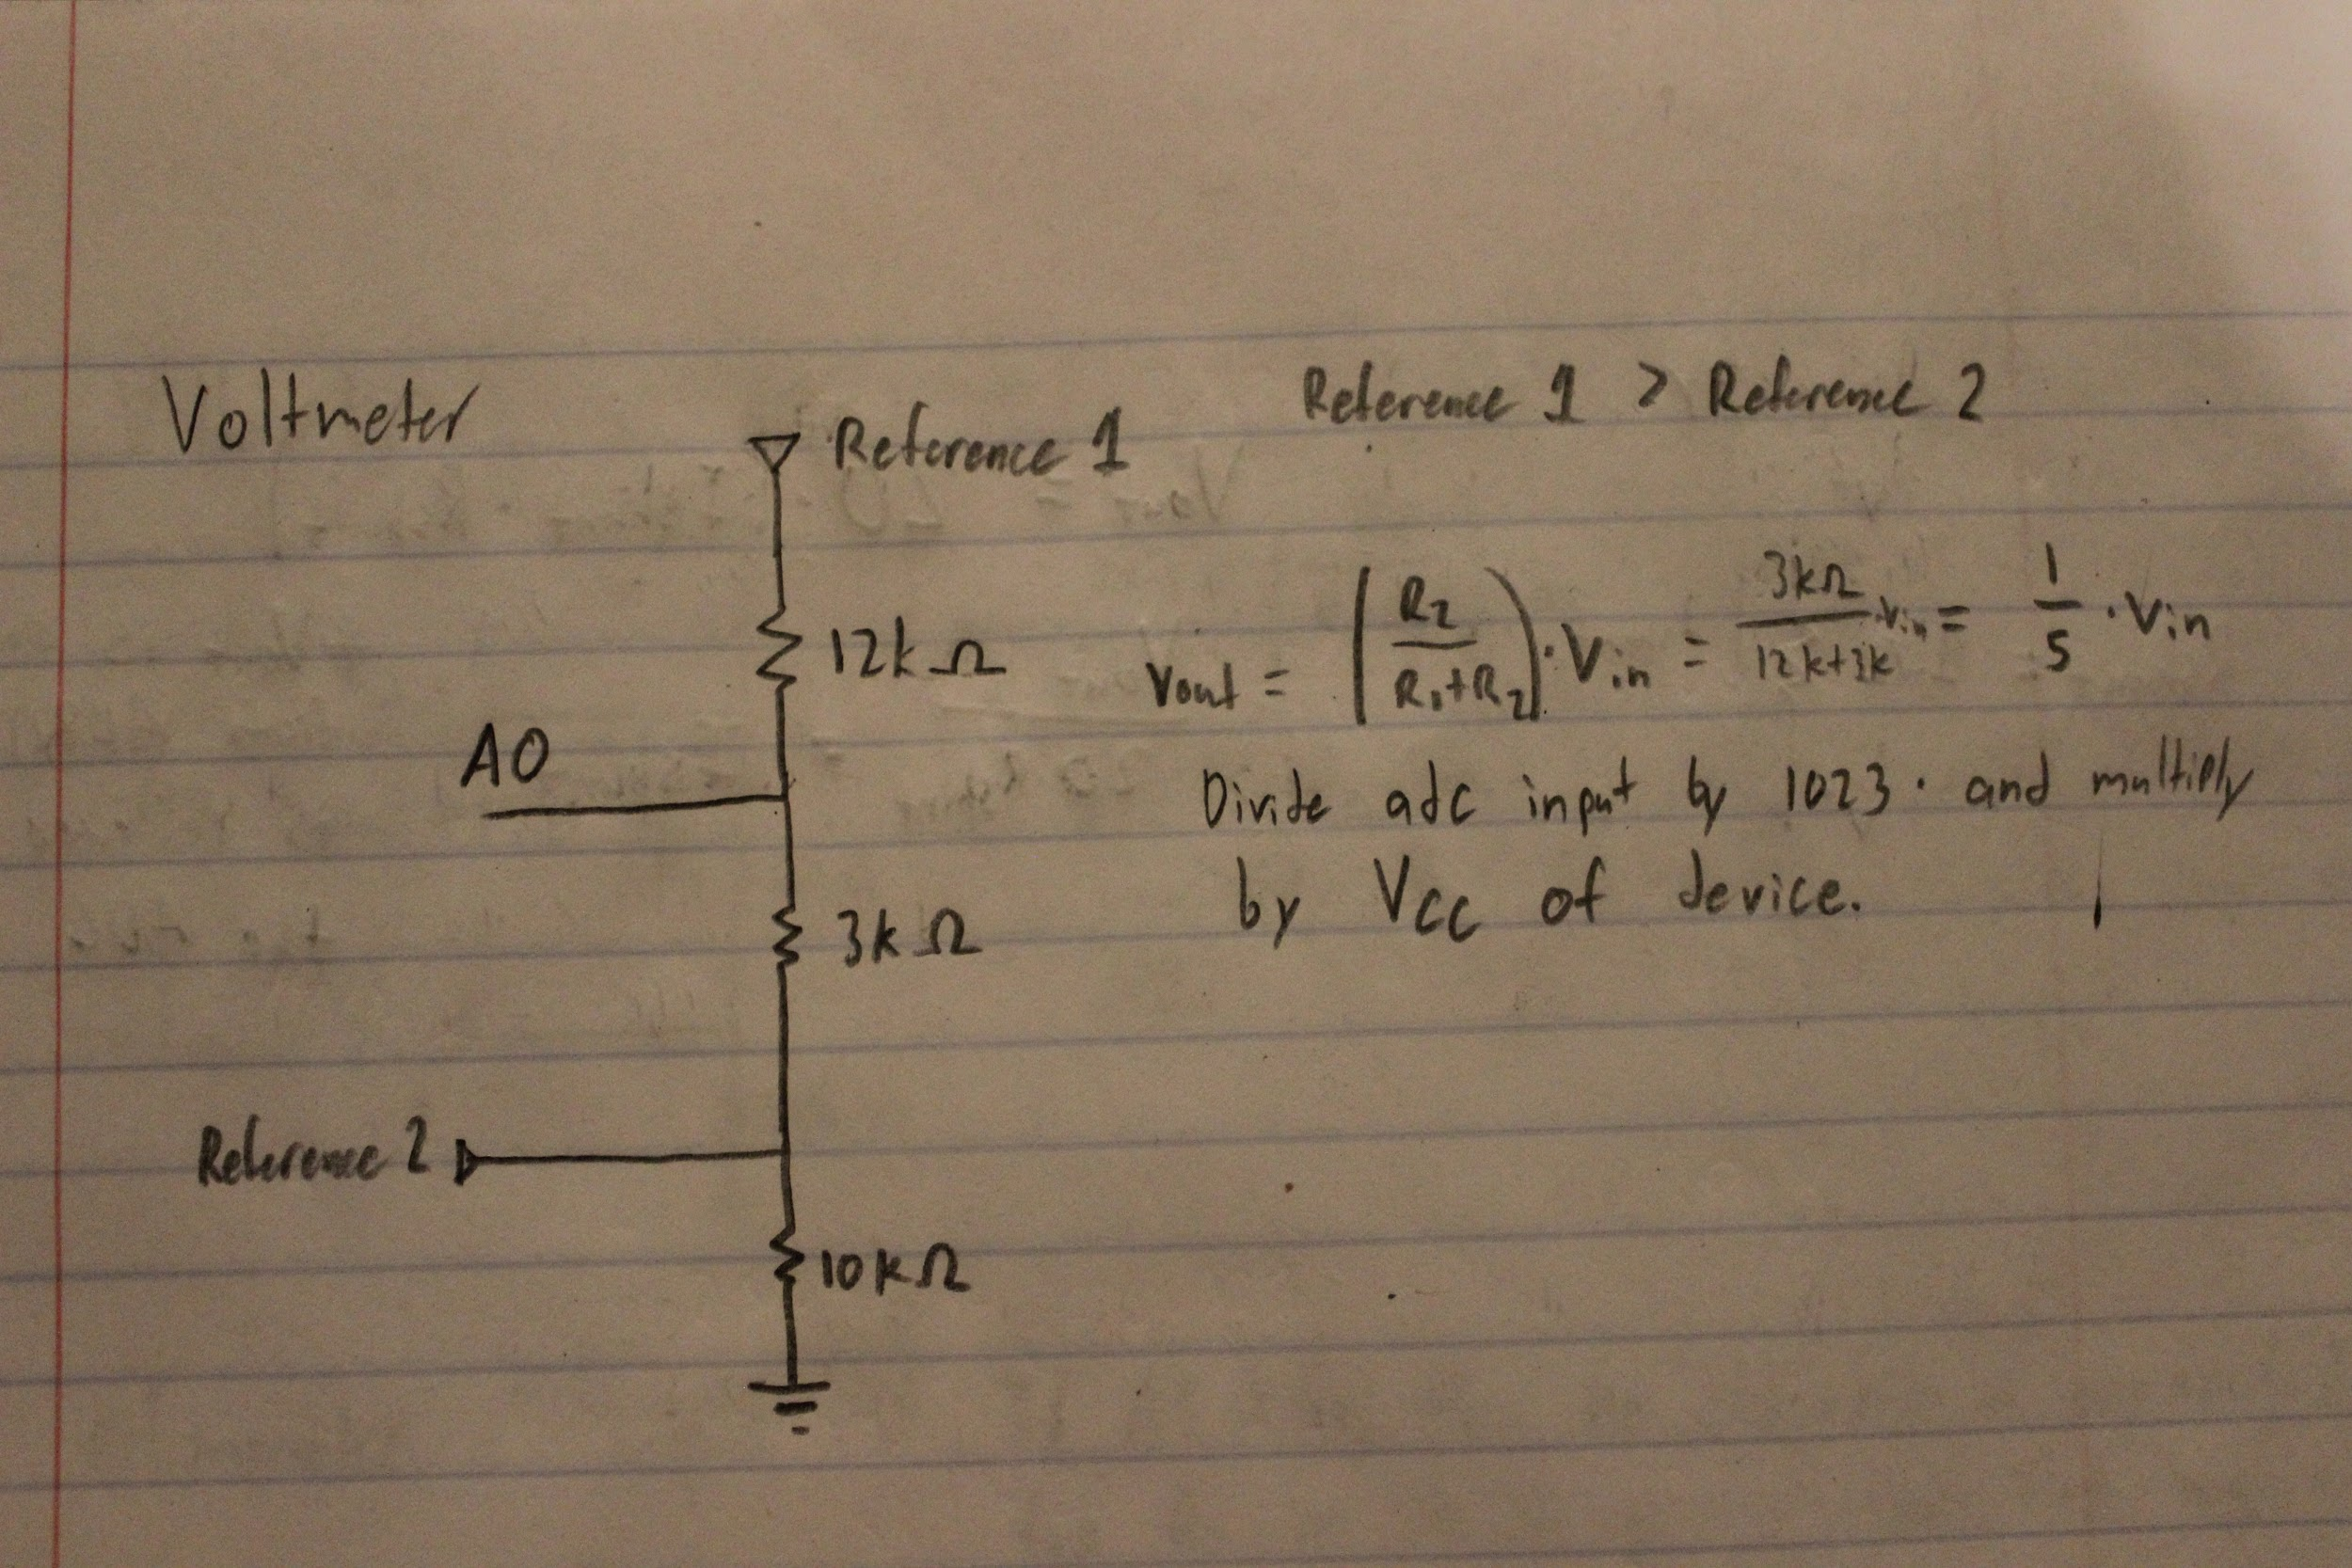 Voltmeter
Reference 1
Reference 1 > Reference 2
12kΩ
Vout = (R2 / R1+R2) · Vin = 3kΩ / 12k+3k · Vin = 1/5 · Vin
A0
Divide adc input by 1023. and multiply
by Vcc of device.
3kΩ
Reference 2
10kΩ